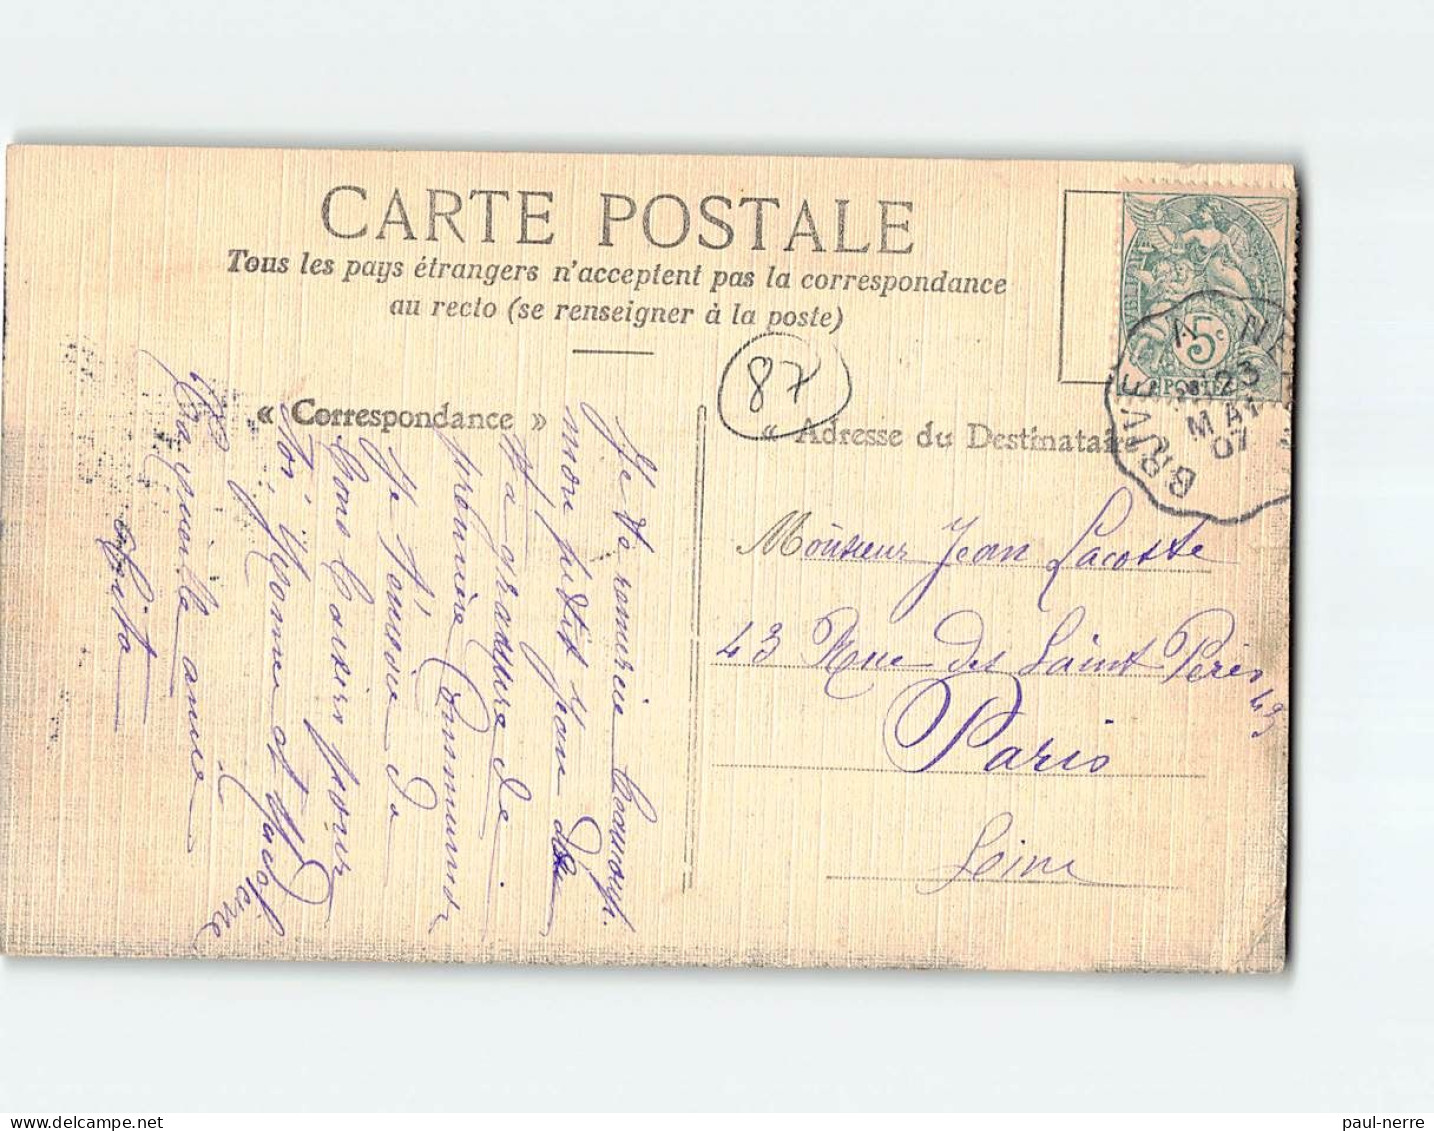 CARTE POSTALE
Tous les pays étrangers n'acceptent pas la correspondance
au recto (se renseigner à la poste)
87
« Correspondance »
« Adresse du Destinataire
5c
POSTES
BRIVE A NE
23
MAI
07
Je te remercie beaucoup
mon petit Jean de
ta gravure de
première Communion
Je t'envoie de
bons baisers pour
toi, Yvonne et
Ta vieille amie
Monsieur Jean Lacoste
43 Rue des Saint Pères 43
Paris
Seine
paul-nerre